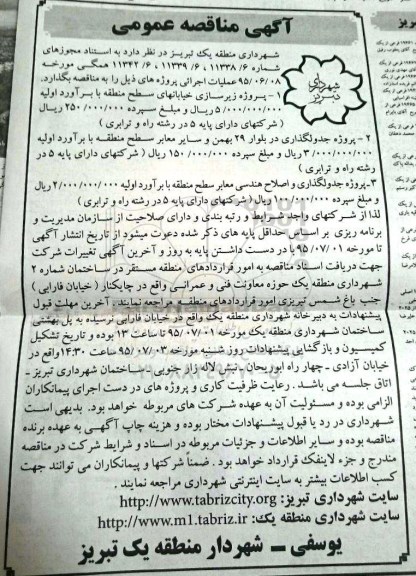 آگهی مناقصه عمومی
شهرداری تبریز
شهرداری منطقه یک تبریز در نظر دارد به استناد مجوزهای
شماره ۶/۱۱۳۳۸ ، ۶/۱۱۳۳۹ ، ۶/۱۱۳۴۲ همگی مورخه
۹۵/۰۶/۰۸ عملیات اجرائی پروژه های ذیل را به مناقصه بگذارد.
۱- پروژه زیرسازی خیابانهای سطح منطقه با برآورد اولیه
۵/۰۰۰/۰۰۰/۰۰۰ ریال و مبلغ سپرده ۲۵۰/۰۰۰/۰۰۰ ریال
( شرکتهای دارای پایه ۵ در رشته راه و ترابری )
۲- پروژه جدولگذاری در بلوار ۲۹ بهمن و سایر معابر سطح منطقه با برآورد اولیه
۳/۰۰۰/۰۰۰/۰۰۰ ریال و مبلغ سپرده ۱۵۰/۰۰۰/۰۰۰ ریال (شرکتهای دارای پایه ۵ در
رشته راه و ترابری )
۳- پروژه جدولگذاری و اصلاح هندسی معابر سطح منطقه با برآورد اولیه ۲/۰۰۰/۰۰۰/۰۰۰ ریال
و مبلغ سپرده ۱۰۰/۰۰۰/۰۰۰ ریال ( شرکتهای دارای پایه ۵ در رشته راه و ترابری )
لذا از شرکتهای واجد شرایط و رتبه بندی و دارای صلاحیت از سازمان مدیریت و
برنامه ریزی بر اساس حداقل پایه های ذکر شده دعوت میشود از تاریخ انتشار آگهی
تا مورخه ۹۵/۰۷/۰۱ با در دست داشتن پایه به روز و آخرین آگهی تغییرات شرکت
جهت دریافت اسناد مناقصه به امور قراردادهای منطقه مستقر در ساختمان شماره ۲
شهرداری منطقه یک حوزه معاونت فنی و عمرانی واقع در چایکنار ( خیابان فارابی )
جنب باغ شمس تبریزی امور قراردادهای منطقه مراجعه نمایند . آخرین مهلت قبول
پیشنهادات به دبیرخانه شهرداری منطقه یک واقع در خیابان فارابی نرسیده به پل بهشتی
ساختمان شهرداری منطقه یک مورخه ۹۵/۰۷/۰۱ تا ساعت ۱۳ بوده و تاریخ تشکیل
کمیسیون و بازگشایی پیشنهادات روز شنبه مورخه ۹۵/۰۷/۰۳ ساعت ۱۴:۳۰ واقع در
خیابان آزادی - چهار راه ابوریحان - نبش لاله زار جنوبی - ساختمان شهرداری تبریز -
اتاق جلسه می باشد . رعایت ظرفیت کاری و پروژه های در دست اجرای پیمانکاران
الزامی بوده و مسئولیت آن به عهده شرکت های مربوطه خواهد بود. بدیهی است
شهرداری در رد یا قبول پیشنهادات مختار بوده و هزینه چاپ آگهی به عهده برنده
مناقصه بوده و سایر اطلاعات و جزئیات مربوطه در اسناد و شرایط شرکت در مناقصه
مندرج و جزء لاینفک قرارداد خواهد بود . ضمناً شرکتها و پیمانکاران می توانند جهت
کسب اطلاعات بیشتر به سایت اینترنتی شهرداری مراجعه نمایند .
سایت شهرداری تبریز: http://www.tabrizcity.org
سایت شهرداری منطقه یک: http://www.m1.tabriz.ir
یوسفی - شهردار منطقه یک تبریز